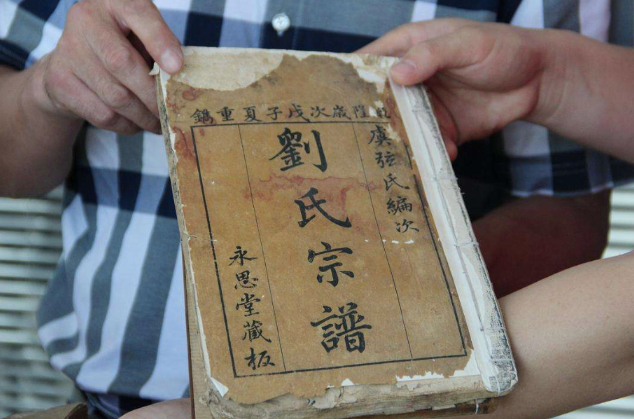 隆歲次戊子夏重鐫
虞氏編次
劉氏宗譜
永思堂藏板